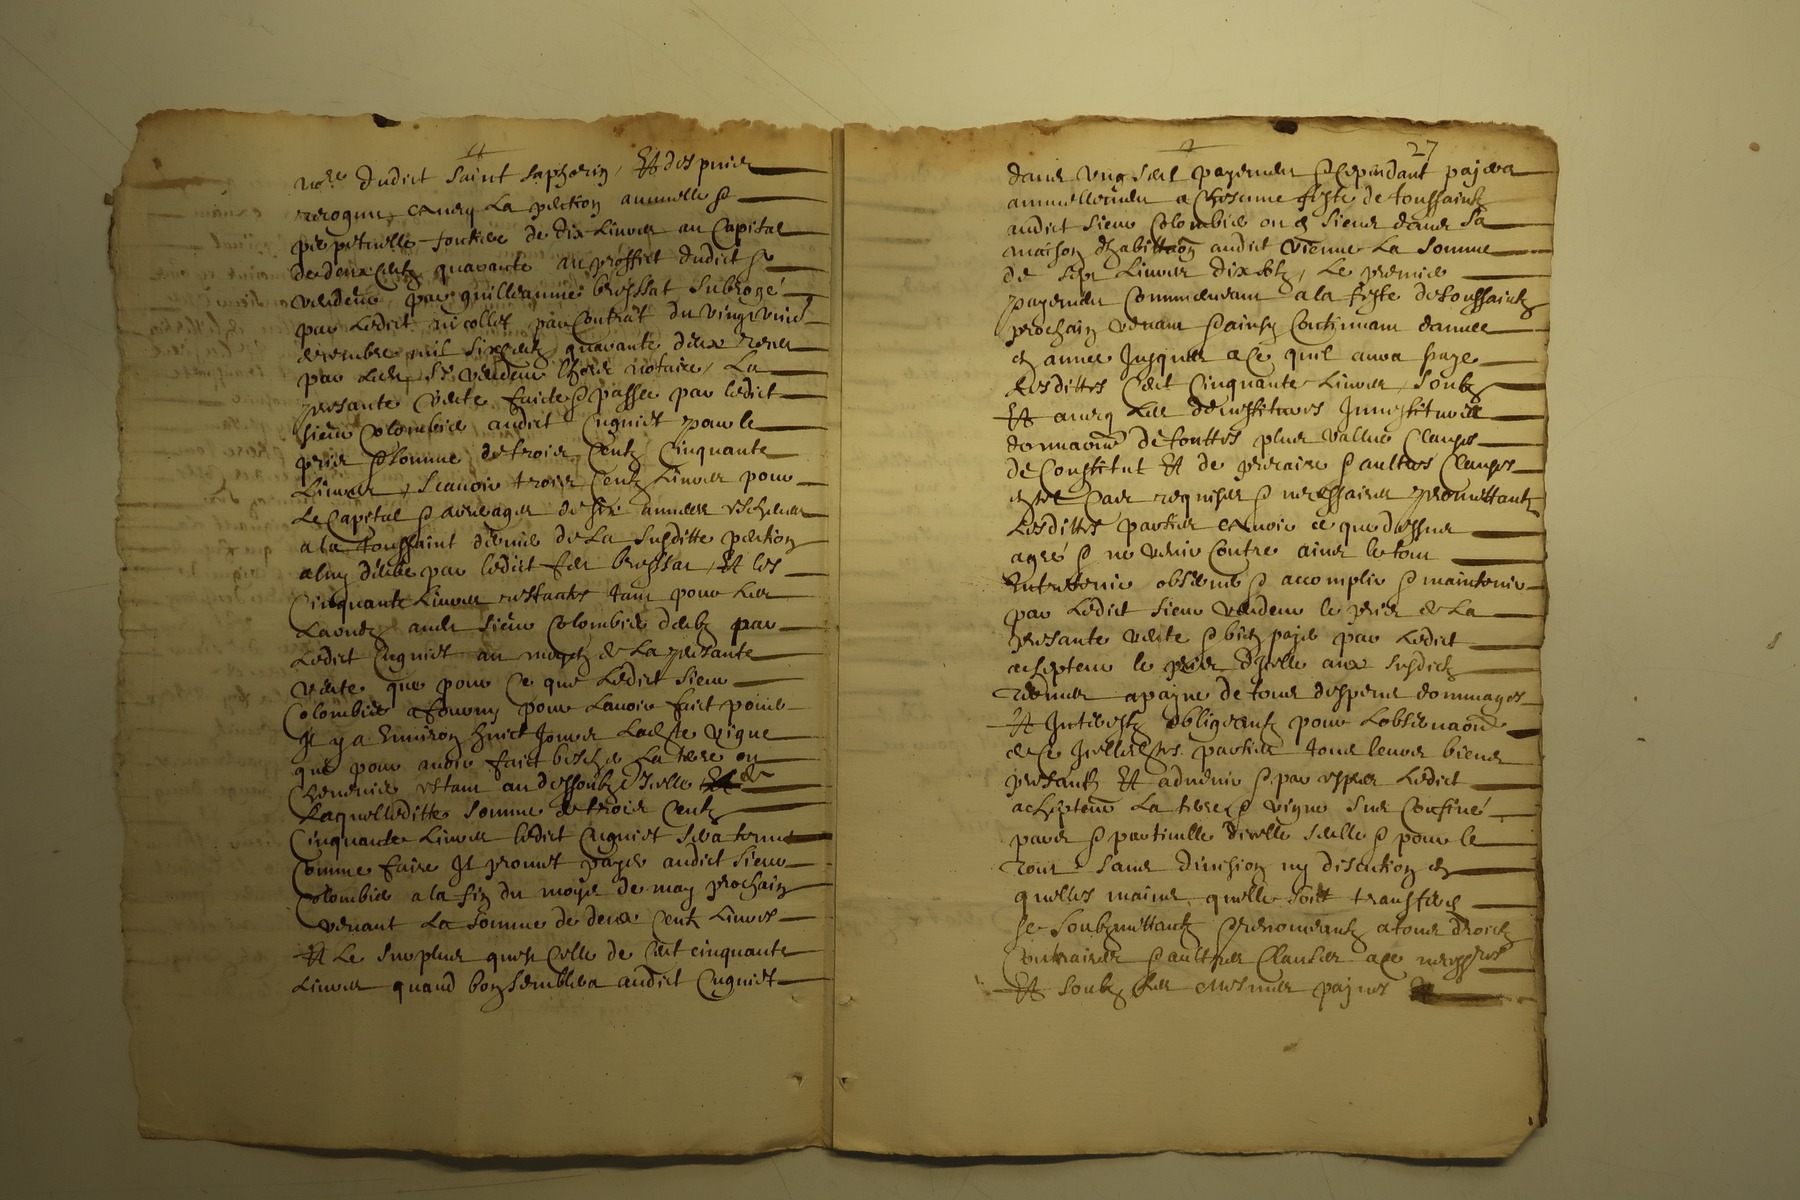 no.re dudict saint saphorin, Et despuis
recogneu envers La pention annuelle &
perpetuelle fonciere de dix Livres au Capital
de deux centz quarante au proffict dudict sr
vendeur par guilleaume brossat subrogé
par Ledict nicollet par Contrat du vingt
decembre mil six centz quarante deux receu
par sr vendeur notaire, La
presante vente faicte & passee par ledict
sieur Colombier audict Cugniet pour le
pris & somme de trois Centz Cinquante
Livres, scauoir trois Centz Livres pour
Le Capital & arrerages de six annees escheues
a la toussaint dernier de La susditte pention
a luy deube par ledict brossat, Et les
Cinquante Livres restantes tant pour les
Laoudz audit sieur Colombier deubz par
Ledict Cugniet au moyen de La presante
vente que pour Ce que Ledict sieur
Colombier a fourny pour Lauoir faict
Il y a Environ huict Jours Ladite vigne
que pour auoir faict La terre ou
estant au dessoubz d'Icelle de
Laquelleditte somme de trois Centz
Cinquante Livres ledict Cugniet sera tenu
Comme faire Il promet payer audict sieur
Colombier a la fin du moys de may prochain
venant La somme de deux Centz Livres
Et Le surplus quest Celle de Cent cinquante
Livres quand bon semblera audict Cugniet
27
dans ung seul payement & Cependant payera
annuellement a Chescune feste de toussainctz
audict sieur Colombier ou es siens dans sa
maison dhabitaon audict vienne La somme
de sept Livres dix solz, Le premier
payement Commenceant a la feste de toussainctz
prochain venant & ainsy Continuant dannee
en annee Jusques a Ce quil aura paye
Lesdittes Cent Cinquante Livres, soubz
Et auecq Les deuestitures Inuestitures
donnaons de touttes plus vallue Clauses
de Constitut Et de precaire & aultres Clauses
en tel Cas requises & necessaires promettantz
Lesdittes parties auoir ce que dessus
agree & ne venir Contre ains le tout
Entretenir obseruer & accomplir & maintenir
par Ledict sieur vendeur le pris de La
presante vente & bien payer par Ledict
achepteur le pris d'Icelle aux susdictz
termes a payne de tous despens dommages
Et Interestz obligeantz pour Lobseruaon
de Ce Icelles parties tous leurs biens
presantz Et aduenir & par expres Ledict
achepteur La terre & vigne sus Confiné
pars & particulle dicelle seulle & pour le
tout sans diuision ny discution en
quelles mains quelle soit transferee
se soubzmettantz & renonceantz a tous droictz
Contraires & aultres Clauses a ce necess.res
Et soubz Les mesmes paynes